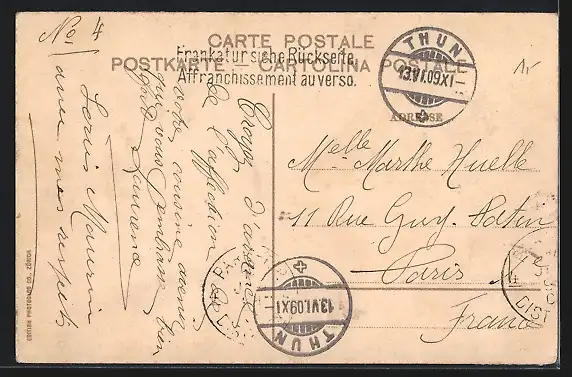 No 4
CARTE POSTALE
POSTKARTE — CARTOLINA POSTALE
Frankatur siehe Rückseite.
Affranchissement au verso.
THUN
13.VI.09.XI
ADRESSE
Melle Marthe Huelle
11 Rue Guy-Patin
Paris
France
Croyez d'avance
de l'affection
votre cousine
qui vous embrasse bien
fort
Laurence
Louis Maurin
avec mes respects
THUN
13.VI.09.XI
DIST
EDITION PHOTOGLOB CO., ZÜRICH